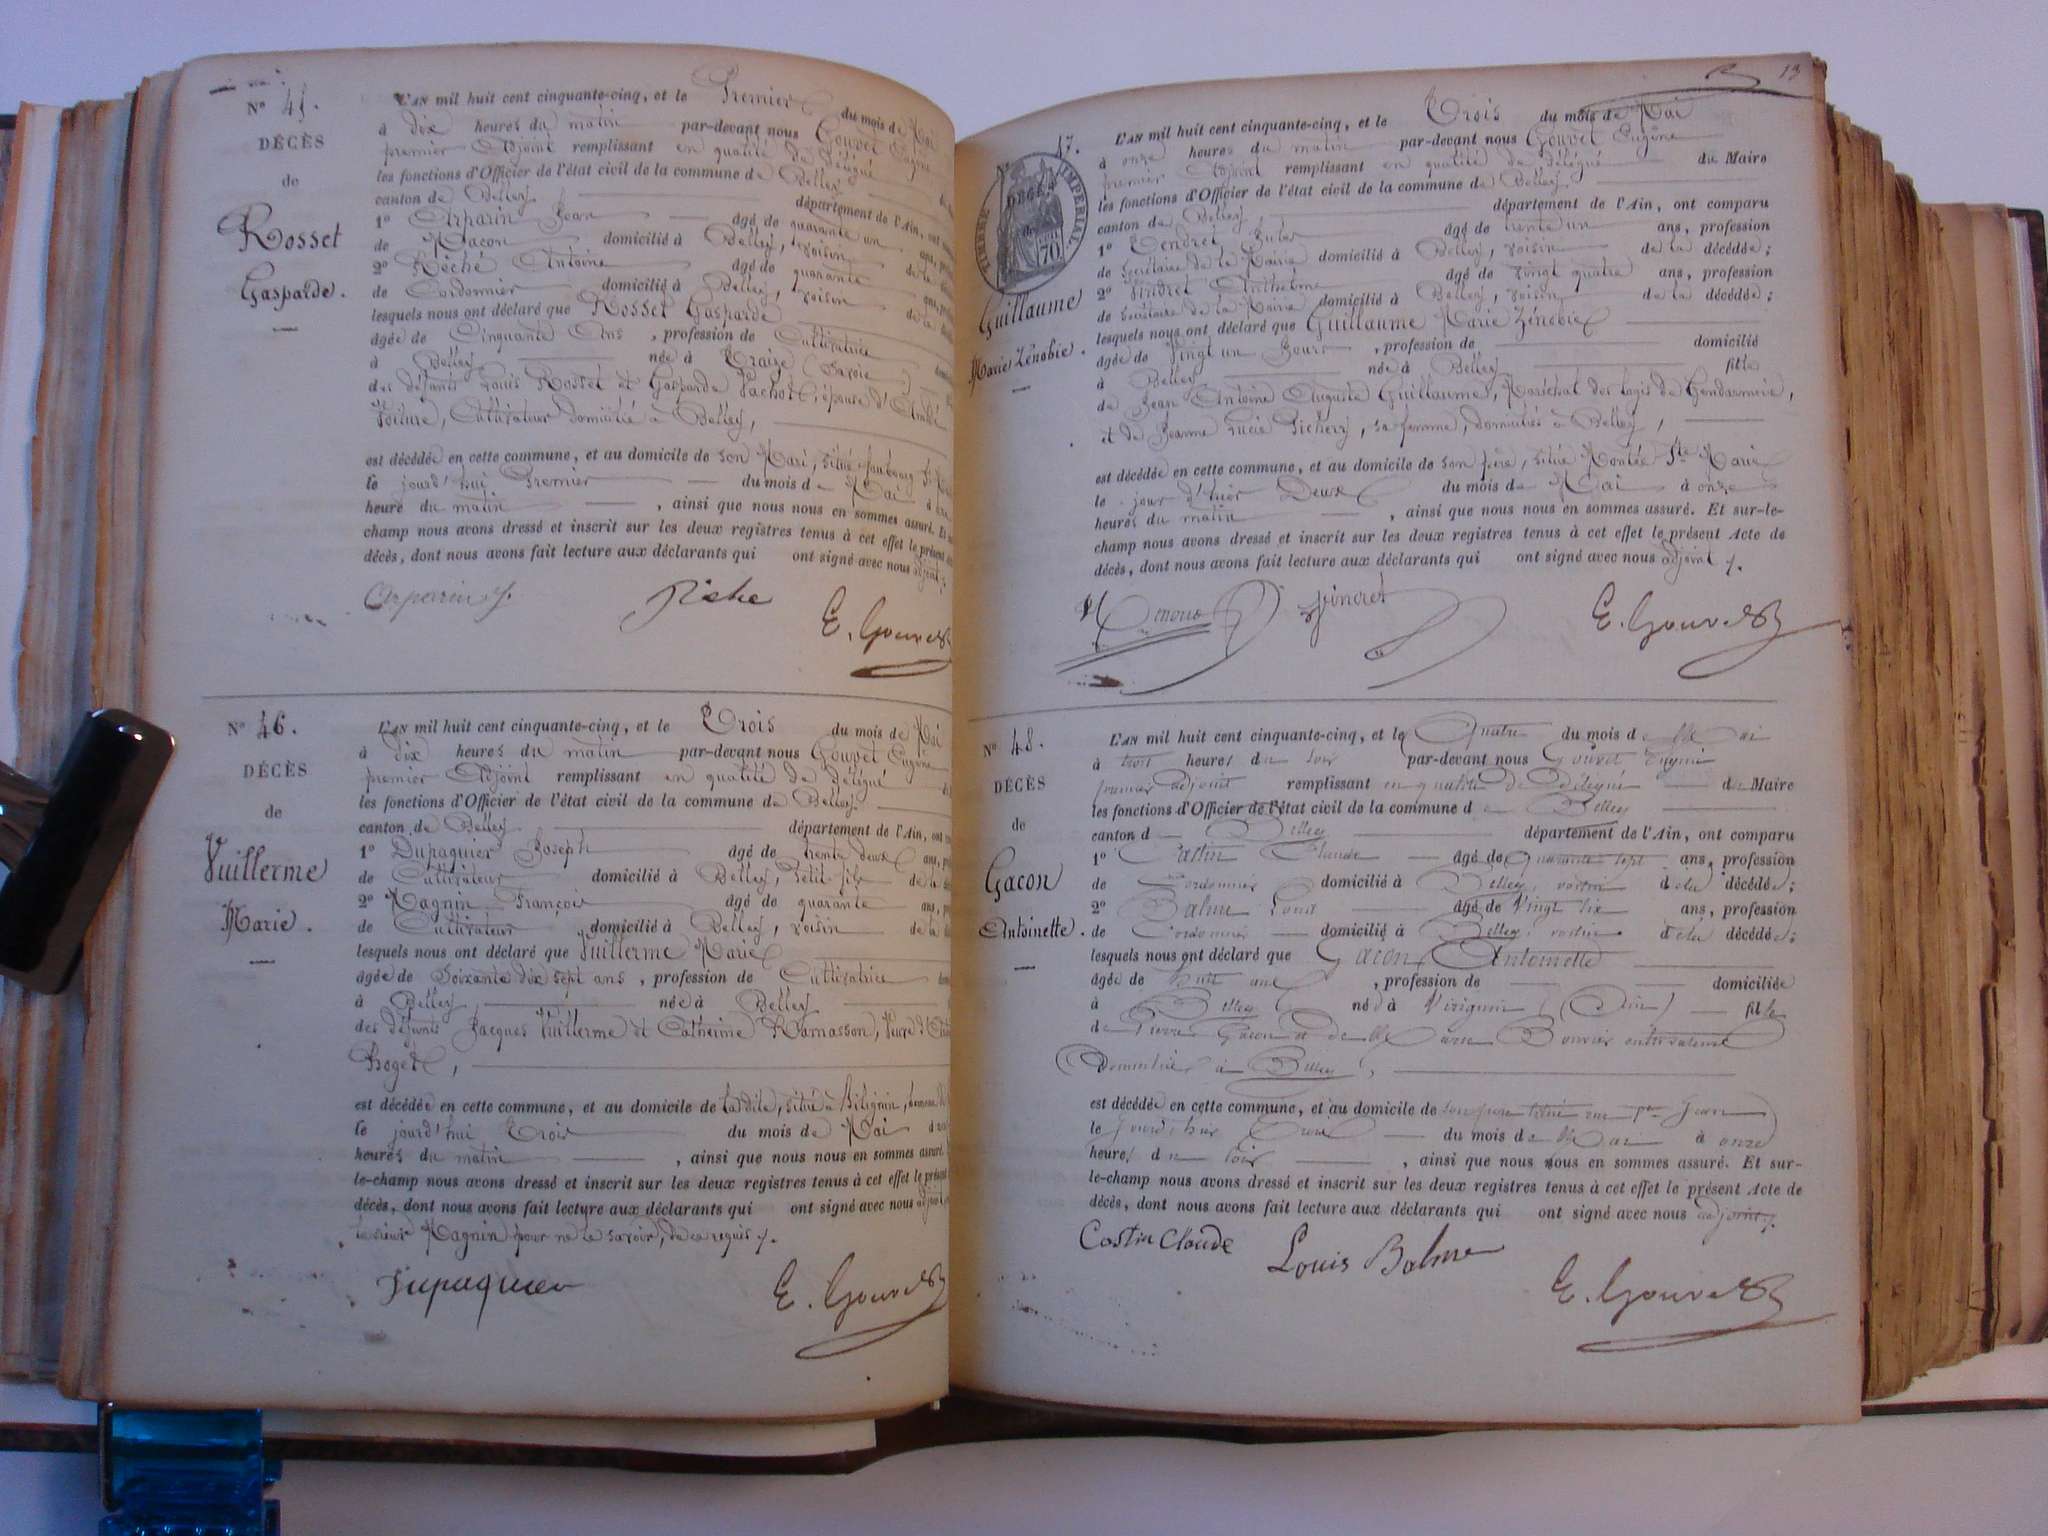 N° 45.
DÉCÈS
de
Rosset
Gasparde.
L'AN mil huit cent cinquante-cinq, et le Premier du mois de Mai
à dix heures du matin par-devant nous Gouvet Eugène
premier Adjoint remplissant en qualité de délégué
les fonctions d'Officier de l'état civil de la commune de Belley
canton de Belley département de l'Ain, ont
1° Arparin Jean âgé de quarante un ans,
de Maçon domicilié à Belley, voisin de la
2° Réché Antoine âgé de quarante
de Cordonnier domicilié à Belley, voisin de la
lesquels nous ont déclaré que Rosset Gasparde
âgée de Cinquante Ans, profession de Cultivatrice
à Belley née à Traize (Savoie)
des défunts Louis Rosset et Gasparde Vachot, épouse d'
Voiture, Cultivateur domicilié à Belley,
est décédée en cette commune, et au domicile de son Mari, situé faubourg St
le jourd'hui Premier du mois de Mai à
heure du matin, ainsi que nous nous en sommes assuré. Et
champ nous avons dressé et inscrit sur les deux registres tenus à cet effet le présent
décès, dont nous avons fait lecture aux déclarants qui ont signé avec nous adjoint.
Arparin J.
E. Gouvet
N° 46.
DÉCÈS
de
Vuillerme
Marie.
L'AN mil huit cent cinquante-cinq, et le Trois du mois de Mai
à dix heures du matin par-devant nous Gouvet Eugène
premier Adjoint remplissant en qualité de délégué
les fonctions d'Officier de l'état civil de la commune de Belley
canton de Belley département de l'Ain, ont
1° Dupaquier Joseph âgé de trente deux ans,
de Cultivateur domicilié à Belley, Petit-fils de la
2° Magnin François âgé de quarante ans,
de Cultivateur domicilié à Belley, voisin de la
lesquels nous ont déclaré que Vuillerme Marie
âgée de Soixante dix sept ans, profession de Cultivatrice
à Belley, née à Belley
des défunts Jacques Vuillerme et Catherine Ramasson, Veuve d'
Roger,
est décédée en cette commune, et au domicile de ladite, situé à Billignin,
le jourd'hui Trois du mois de Mai à
heures du matin, ainsi que nous nous en sommes assuré.
le-champ nous avons dressé et inscrit sur les deux registres tenus à cet effet le présent
décès, dont nous avons fait lecture aux déclarants qui ont signé avec nous adjoint
le sieur Magnin pour ne le savoir, de ce requis.
Dupaquier
E. Gouvet
13
N° 47.
DÉCÈS
de
TIMBRE IMPÉRIAL
70
Guillaume
Marie Zénobie.
L'AN mil huit cent cinquante-cinq, et le Trois du mois de Mai
à onze heures du matin par-devant nous Gouvet Eugène
premier Adjoint remplissant en qualité de délégué du Maire
les fonctions d'Officier de l'état civil de la commune de Belley
canton de Belley département de l'Ain, ont comparu
1° Tendret Jules âgé de trente un ans, profession
de Secrétaire de la Mairie domicilié à Belley, voisin de la décédée;
2° Anthelme âgé de vingt quatre ans, profession
de Secrétaire de la Mairie domicilié à Belley, voisin de la décédée;
lesquels nous ont déclaré que Guillaume Marie Zénobie
âgée de Vingt un Jours, profession de domicilié
à Belley née à Belley fille
de Jean Antoine Auguste Guillaume, Maréchal des logis de Gendarmerie,
et de Jeanne Lucie Pichery, sa femme, domiciliés à Belley,
est décédée en cette commune, et au domicile de son père, situé Montée Ste Marie
le jour d'hier Deux du mois de Mai à onze
heures du matin, ainsi que nous nous en sommes assuré. Et sur-le-
champ nous avons dressé et inscrit sur les deux registres tenus à cet effet le présent Acte de
décès, dont nous avons fait lecture aux déclarants qui ont signé avec nous adjoint.
E. Gouvet
N° 48.
DÉCÈS
de
Gacon
Antoinette.
L'AN mil huit cent cinquante-cinq, et le Quatre du mois de Mai
à trois heures du soir par-devant nous Gouvet Eugène
premier adjoint remplissant en qualité de Délégué du Maire
les fonctions d'Officier de l'état civil de la commune de Belley
canton de Belley département de l'Ain, ont comparu
1° Castin Claude âgé de quarante sept ans, profession
de Cordonnier domicilié à Belley, voisin de la décédée;
2° Balme Louis âgé de Vingt six ans, profession
de Cordonnier domicilié à Belley, voisin de la décédée;
lesquels nous ont déclaré que Gacon Antoinette
âgée de huit ans, profession de domiciliée
à Belley née à Virignin (Ain) fille
de Pierre Gacon et de Marie Bouvier
Domiciliés à Belley,
est décédée en cette commune, et au domicile de son père situé rue St Jean
le jourd'hier Trois du mois de Mai à onze
heures du soir, ainsi que nous nous en sommes assuré. Et sur-
le-champ nous avons dressé et inscrit sur les deux registres tenus à cet effet le présent Acte de
décès, dont nous avons fait lecture aux déclarants qui ont signé avec nous adjoint.
Castin Claude
Louis Balme
E. Gouvet